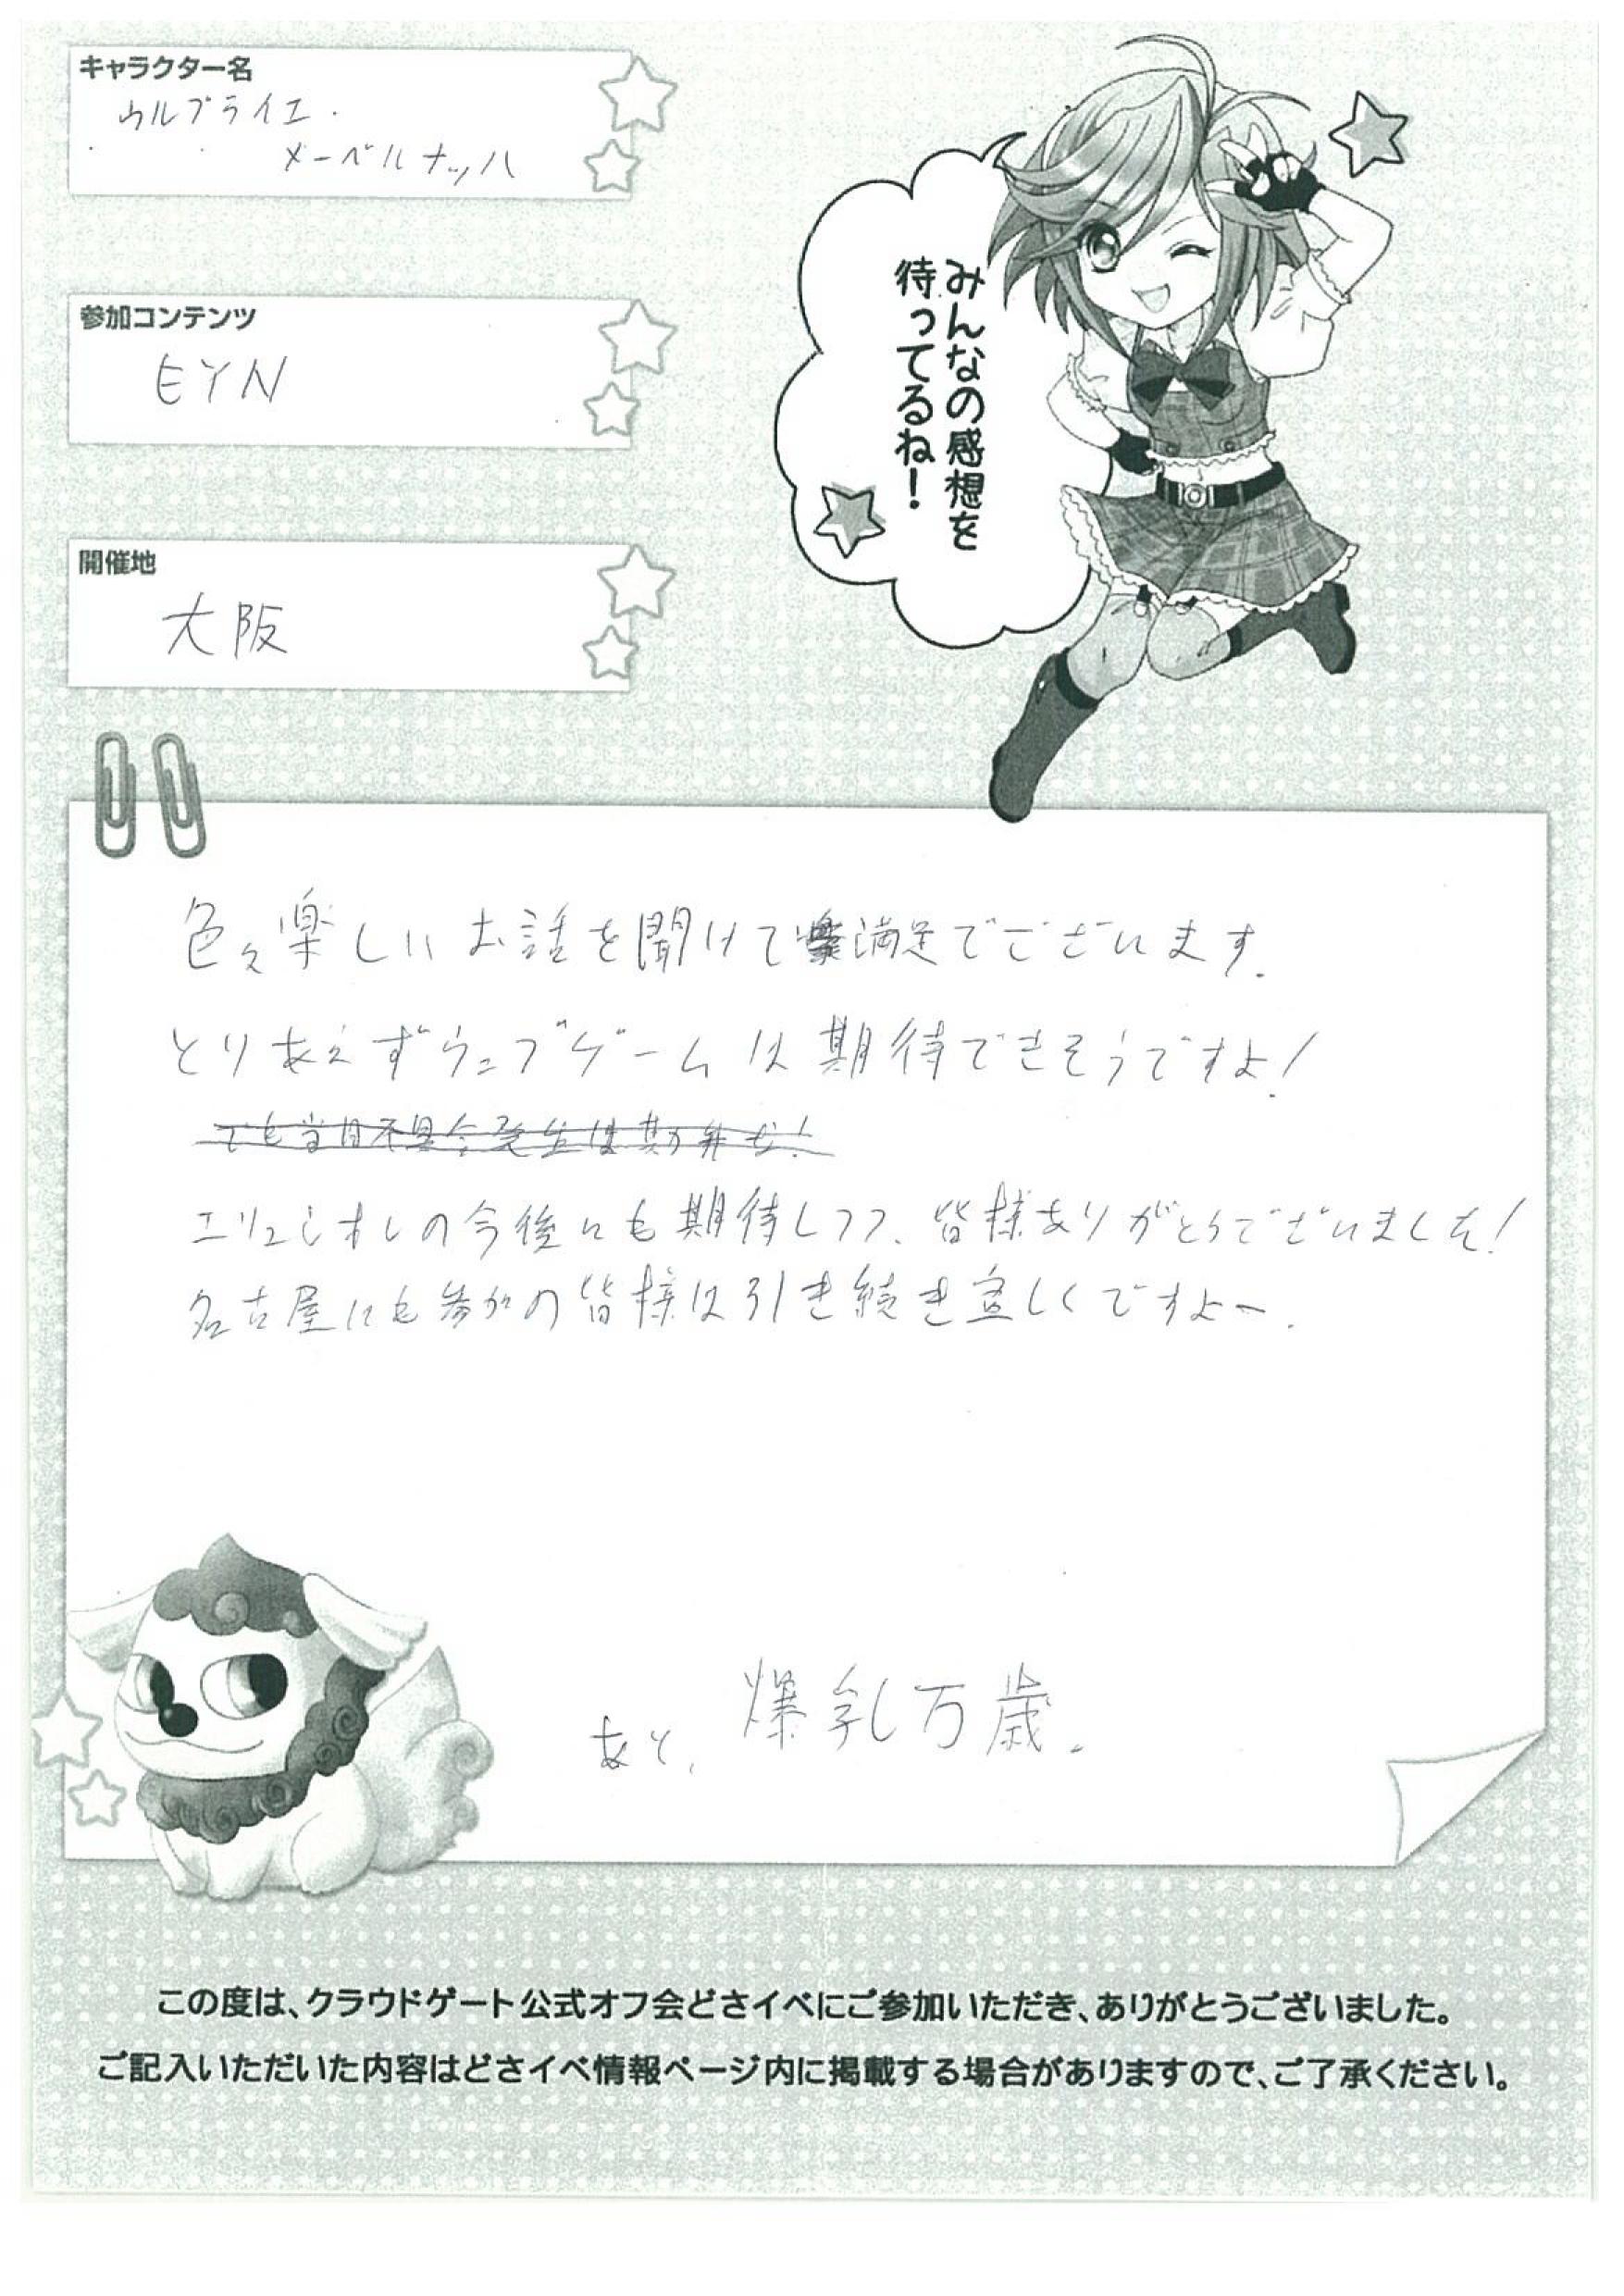 キャラクター名
ウルブライエ・
メーベルナッハ
参加コンテンツ
EYN
開催地
大阪
みんなの感想を
待ってるね!
色々楽しいお話を聞けて満足でございます.
とりあえずウェブゲームは期待できそうですよ!
でも当日不具合発生は勘弁な!
エリュシオンの今後にも期待しつつ、皆様ありがとうございました!
名古屋にも参加の皆様は引き続き宜しくですよー.
あと、爆乳万歳.
この度は、クラウドゲート公式オフ会どさイベにご参加いただき、ありがとうございました。
ご記入いただいた内容はどさイベ情報ページ内に掲載する場合がありますので、ご了承ください。